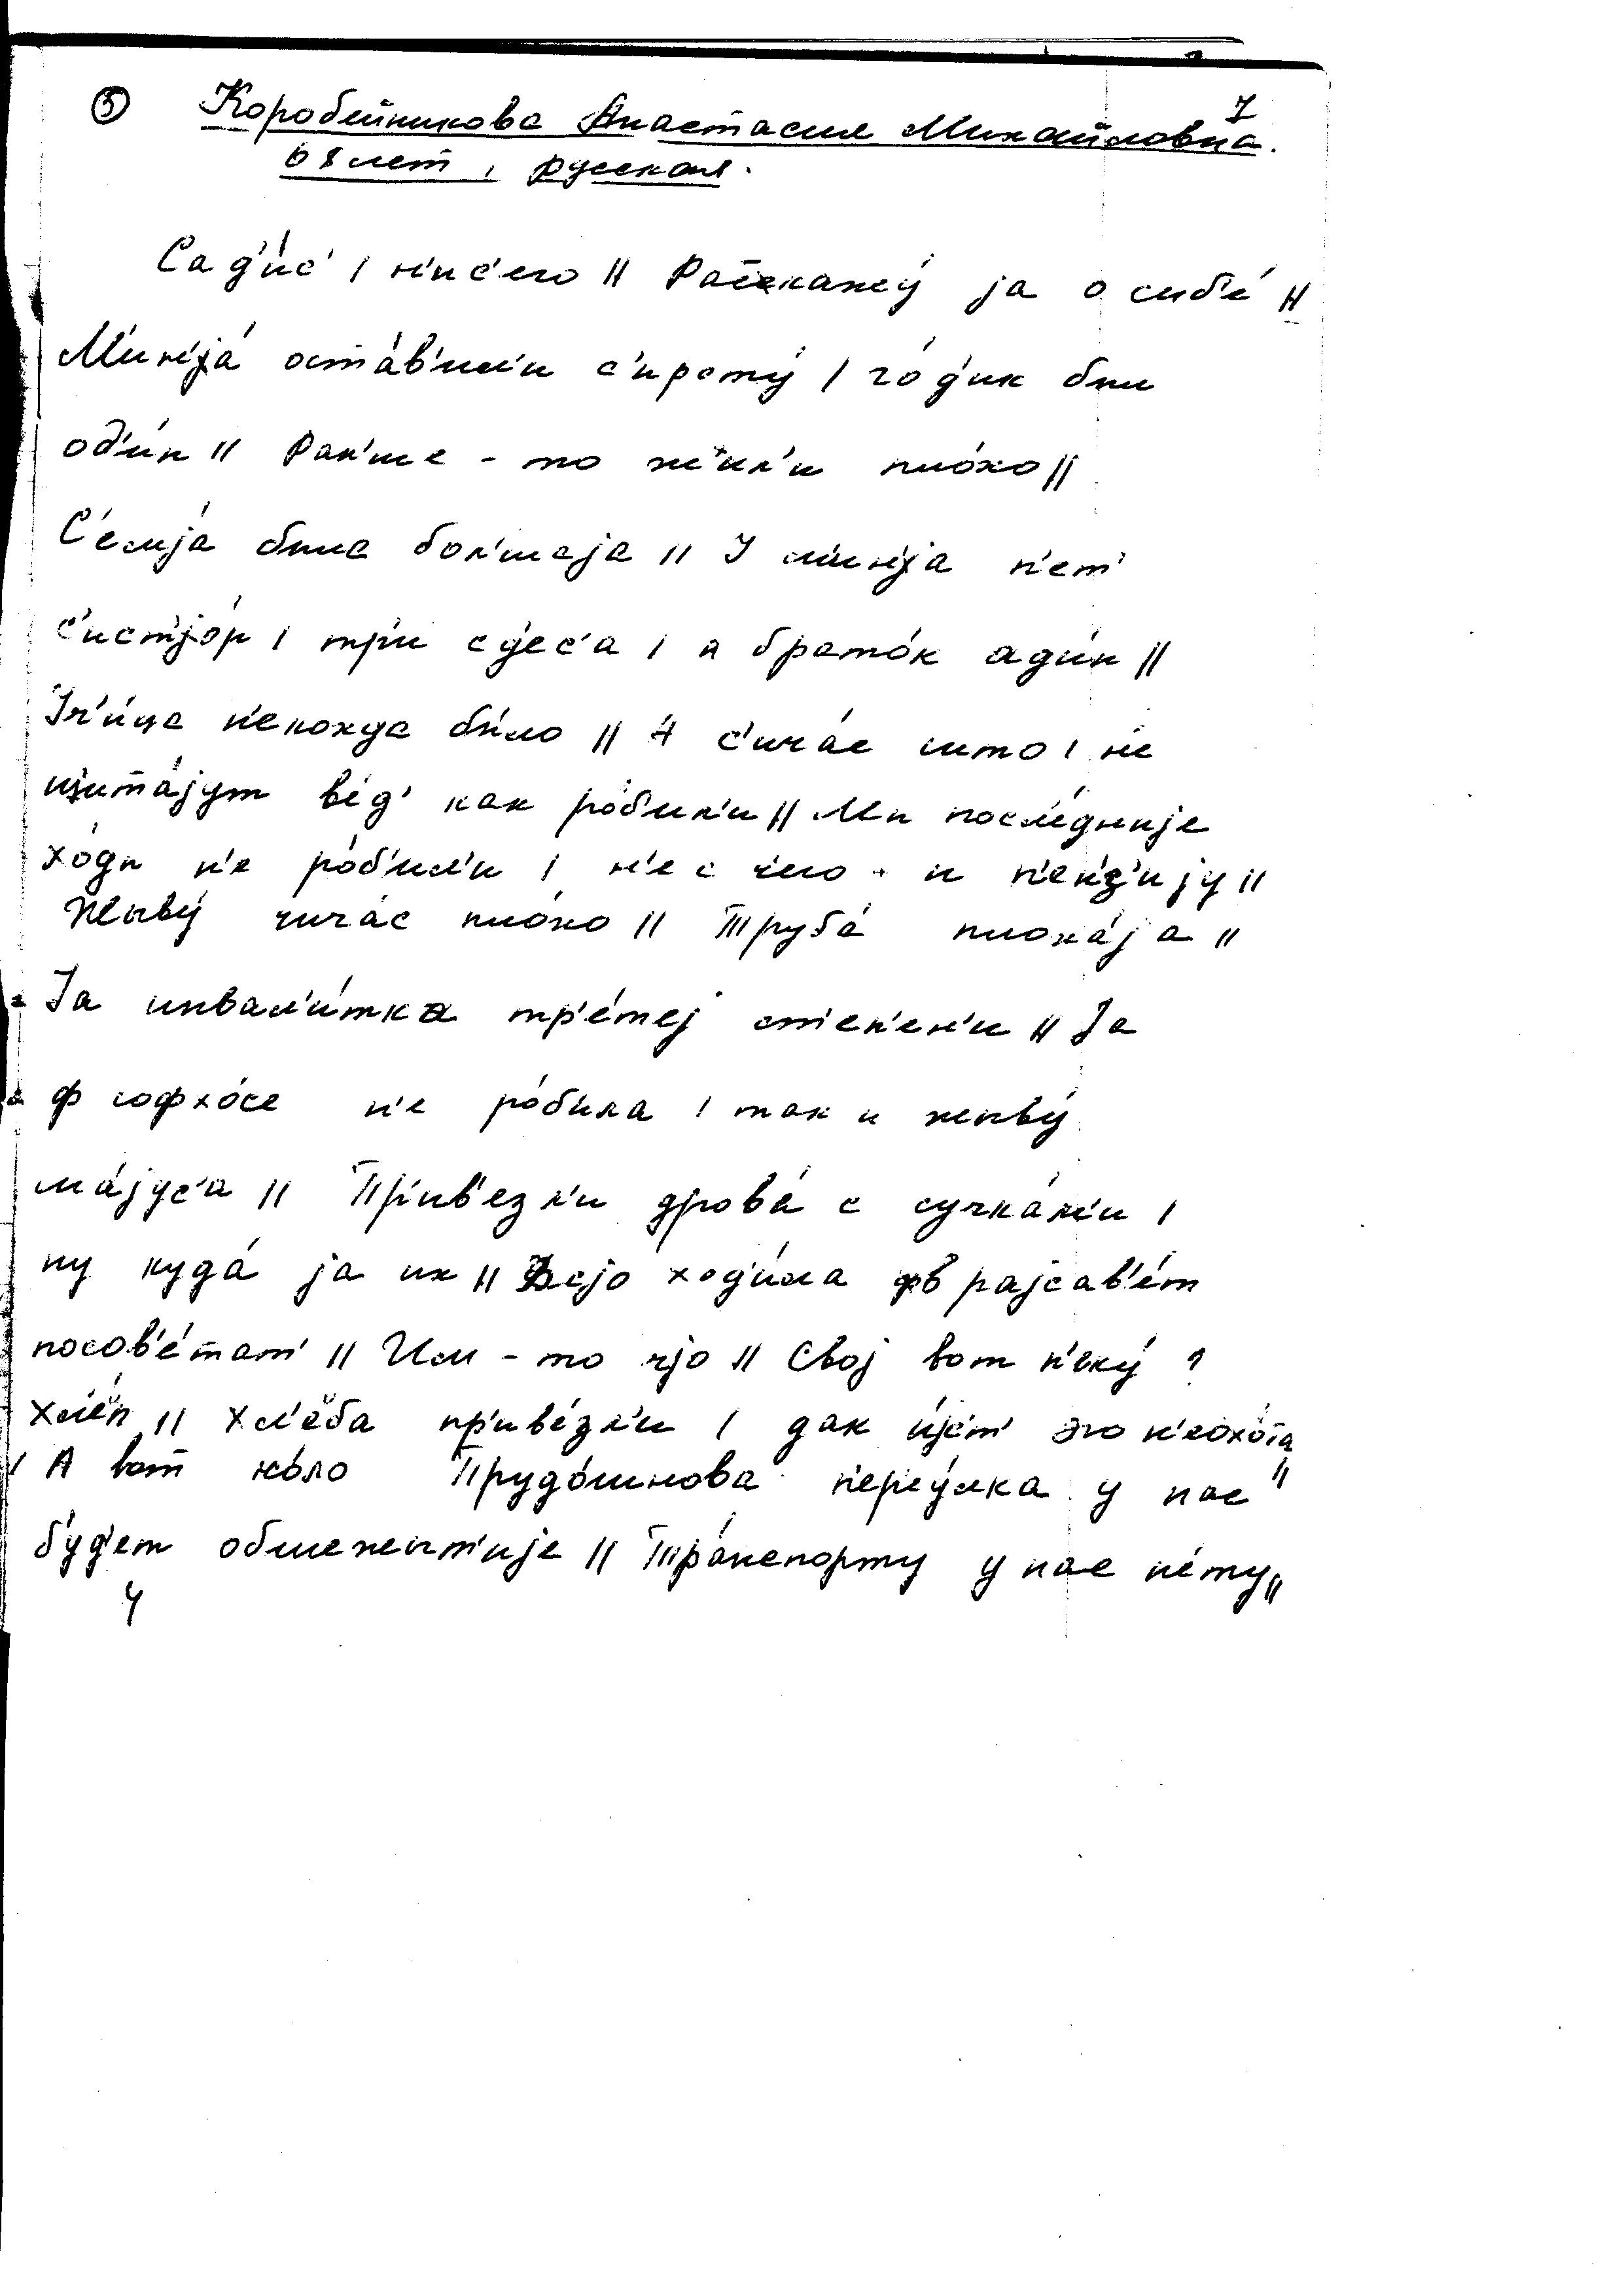 7
⑤ Коробейникова Анастасия Михайловна.
68 лет, русская.
Сад'и́с' / н'ич'его // Раскажу́ jа о сиб'е́ //
М'ин'jа́ оста́в'ил'и с'ироту́ / го́д'ик был
од'и́н // Ран'ше - то жил'и пло́хо //
С'емjа́ была бол'шаjа // У мин'jа п'ет'
с'ист'jо́р / три сд'ес'а / а брато́к ад'и́н //
Уч'и́ца н'екожда бы́ло // А с'ича́с што / не
щита́jут в'ед' как ро́бил'и // Мы посл'е́дниjе
хо́ды н'е ро́б'ил'и / н'е с чего - и п'ен'з'иjу //
Жыву́ чича́с пло́хо // Труба́ плоха́jа //
Jа инвал'и́тка тр'е́теj ст'еп'ен'и // Jа
ф софхо́се н'е ро́била / так и жыву́
ма́jус'а // Прив'езл'и дрова́ с сучка́м'и /
ну куда́ jа их // Всjо ход'и́ла в раjсав'е́т
посов'е́тат' // Им - то чjо // Своj вот п'еку́
хл'е́п // хл'е́ба прив'е́зл'и / дак и́jст' его н'еохо́та //
А вот ко́ло Прудо́шнова переу́лка у нас
бу́д'ет общежыт'иjе // Тра́нспорту у нас не́ту //
4